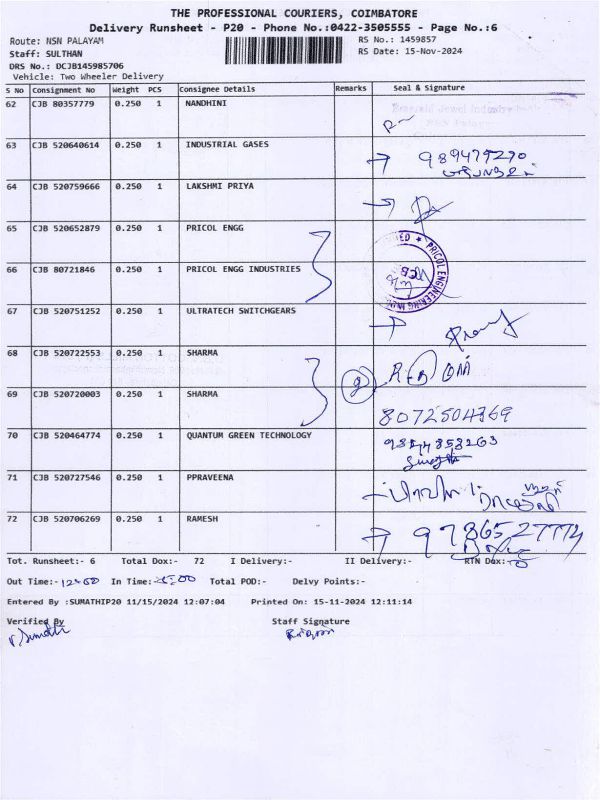 THE PROFESSIONAL COURIERS, COIMBATORE
Delivery Runsheet - P20 - Phone No.:0422-3505555 - Page No.:6
Route: NSN PALAYAM
RS No.: 1459857
Staff: SULTHAN
RS Date: 15-Nov-2024
DRS No.: DCJB145985706
Vehicle: Two Wheeler Delivery
S No Consignment No Weight PCS Consignee Details Remarks Seal & Signature
62 CJB 80357779 0.250 1 NANDHINI
63 CJB 520640614 0.250 1 INDUSTRIAL GASES
64 CJB 520759666 0.250 1 LAKSHMI PRIYA
65 CJB 520652879 0.250 1 PRICOL ENGG
66 CJB 80721846 0.250 1 PRICOL ENGG INDUSTRIES
67 CJB 520751252 0.250 1 ULTRATECH SWITCHGEARS
68 CJB 520722553 0.250 1 SHARMA
69 CJB 520720003 0.250 1 SHARMA 8072504369
70 CJB 520464774 0.250 1 QUANTUM GREEN TECHNOLOGY
71 CJB 520727546 0.250 1 PPRAVEENA
72 CJB 520706269 0.250 1 RAMESH
Tot. Runsheet:- 6 Total Dox:- 72 I Delivery:- II Delivery:- RTN Dox:-
Out Time:- In Time:- Total POD:- Delvy Points:-
Entered By :SUMATHIP20 11/15/2024 12:07:04 Printed On: 15-11-2024 12:11:14
Verified By Staff Signature